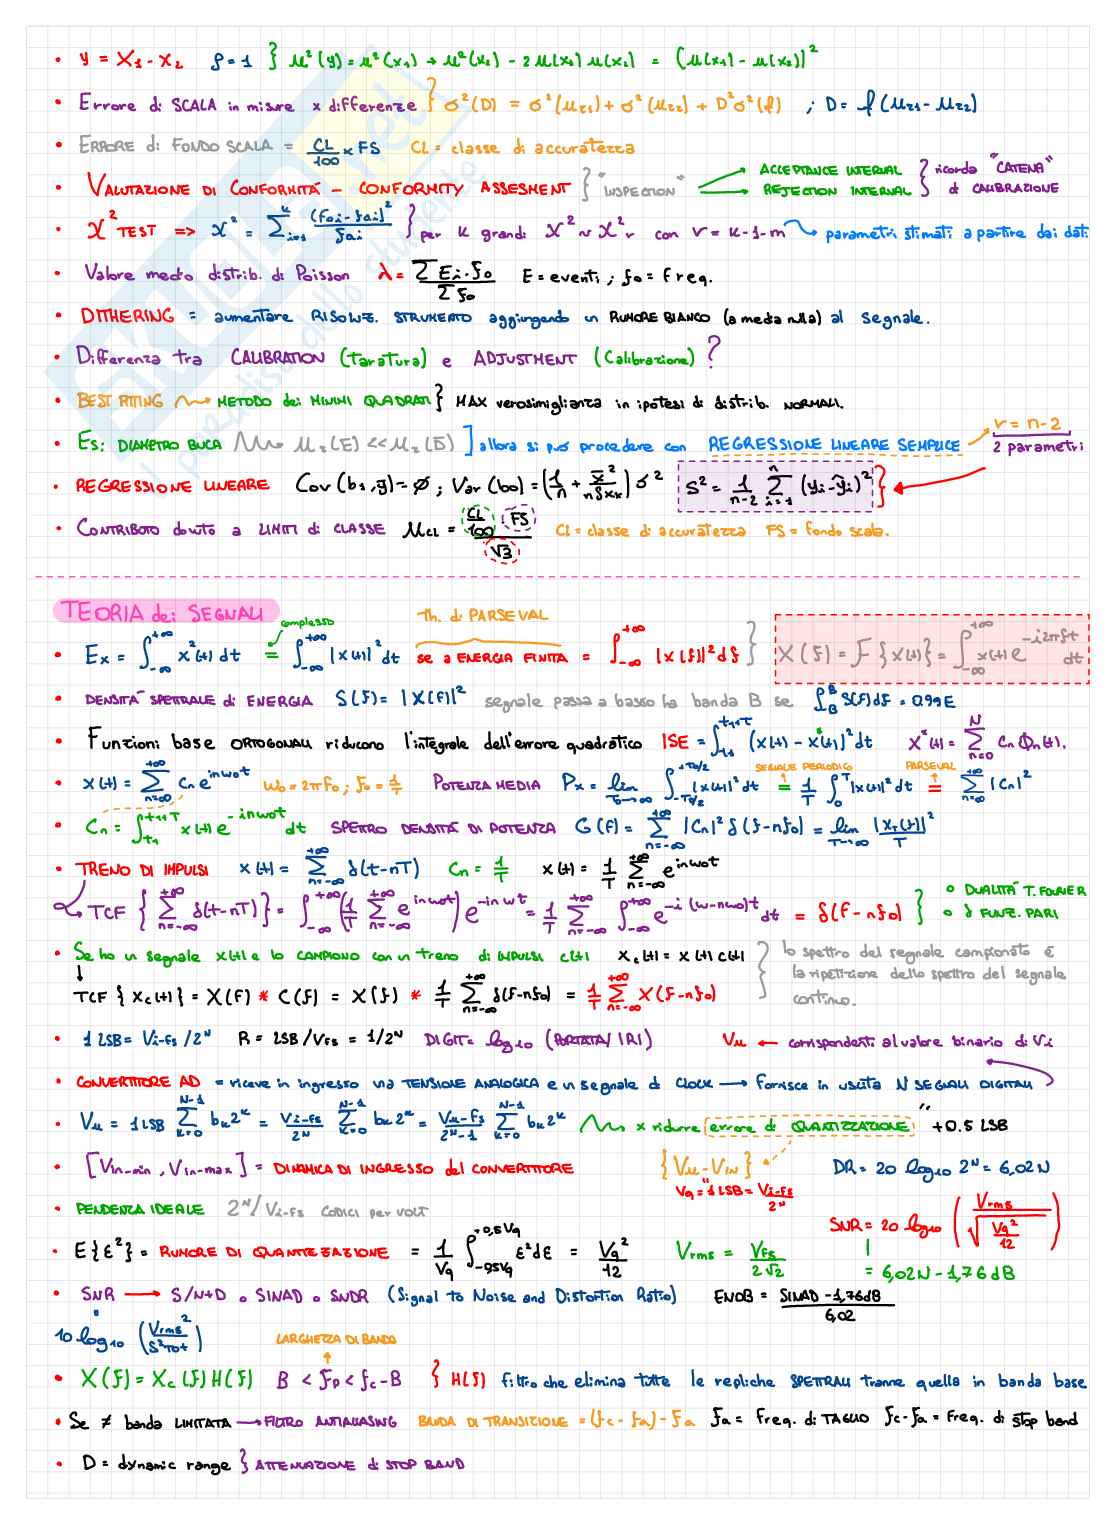 • y = X₁ - X₂   ρ = 1 } μ²(y) = μ²(x₁) + μ²(x₂) - 2μ(x₁) μ(x₂) = (μ(x₁) - μ(x₂))²
• Errore di SCALA in misure x differenze } σ²(D) = σ²(μz1) + σ²(μz2) + D²σ²(f) ; D = f(μz1 - μz2)
• ERRORE di FONDO SCALA = CL/100 × FS   CL = classe di accuratezza
• VALUTAZIONE DI CONFORMITÀ - CONFORMITY ASSESMENT } "INSPECTION" ACCEPTANCE INTERVAL REJECTION INTERVAL } ricorda "CATENA" di CALIBRAZIONE
• χ² TEST => χ² = Σ_{i=1}^{k} (foi - fai)²/fai } per k grandi χ² ~ χ²r con r = k-1-m parametri stimati a partire dai dati
• Valore medio distrib. di Poisson λ = ΣEi·fo / Σfo   E = eventi ; fo = freq.
• DITHERING = aumentare RISOLUZ. STRUMENTO aggiungendo un RUMORE BIANCO (a media nulla) al segnale.
• Differenza tra CALIBRATION (taratura) e ADJUSTMENT (Calibrazione) ?
• BEST FITTING METODO dei MINIMI QUADRATI } MAX verosimiglianza in ipotesi di distrib. NORMALI.
• Es: DIAMETRO BUCA μz(E) << μz(D) ] allora si può procedere con REGRESSIONE LINEARE SEMPLICE   r = n-2
2 parametri
• REGRESSIONE LINEARE Cov(b₁,y̅) = Ø ; Var(b₀) = (1/n + x̅²/nSxx) σ²   S² = 1/n-2 Σ_{i=1}^{n} (yi - ŷi)² }
• CONTRIBUTO dovuto a LIMITI di CLASSE μCL = CL/100 FS / √3   CL = classe di accuratezza FS = fondo scala.
TEORIA dei SEGNALI
complesso   Th. di PARSEVAL
• Ex = ∫_{-∞}^{+∞} x²(t) dt = ∫_{-∞}^{+∞} |x(t)|² dt se a ENERGIA FINITA = ∫_{-∞}^{+∞} |X(f)|² df }   X(f) = F{x(t)} = ∫_{-∞}^{+∞} x(t) e^{-i2πft} dt
• DENSITÀ SPETTRALE di ENERGIA S(f) = |X(f)|² segnale passa a basso ha banda B se ∫_{-B}^{B} S(f)df = 0.99E
• Funzioni base ORTOGONALI riducono l'integrale dell'errore quadratico ISE = ∫_{t1}^{t1+T} (x(t) - x*(t))² dt   x*(t) = Σ_{n=0}^{N} Cn Φn(t).
• x(t) = Σ_{n=∞}^{+∞} Cn e^{inω₀t}   ω₀ = 2πf₀ ; f₀ = 1/T   POTENZA MEDIA Px = lim_{T₀→∞} ∫_{-T₀/2}^{+T₀/2} |x(t)|² dt = 1/T ∫_0^T |x(t)|² dt = Σ_{n=∞}^{+∞} |Cn|²
SEGNALE PERIODICO   PARSEVAL
• Cn = ∫_{t1}^{t1+T} x(t) e^{-inω₀t} dt   SPETTRO DENSITÀ DI POTENZA G(f) = Σ_{n=-∞}^{+∞} |Cn|² δ(f-nf₀) = lim_{T→∞} |X_T(f)|²/T
• TRENO DI IMPULSI x(t) = Σ_{n=-∞}^{+∞} δ(t-nT)   Cn = 1/T   x(t) = 1/T Σ_{n=-∞}^{+∞} e^{inω₀t}
TCF { Σ_{n=-∞}^{+∞} δ(t-nT) } = ∫_{-∞}^{+∞} (1/T Σ_{n=-∞}^{+∞} e^{inω₀t}) e^{-iωt} = 1/T Σ_{n=-∞}^{+∞} ∫_{-∞}^{+∞} e^{-i(ω-nω₀)t} dt = δ(f-nf₀) } ° DUALITÀ T. FOURIER
° δ FUNZ. PARI
• Se ho un segnale x(t) e lo CAMPIONO con un treno di IMPULSI c(t) Xc(t) = x(t) c(t) } lo spettro del segnale campionato è
la ripetizione dello spettro del segnale
continuo.
TCF { Xc(t) } = X(f) * C(f) = X(f) * 1/T Σ_{n=-∞}^{+∞} δ(f-nf₀) = 1/T Σ_{n=-∞}^{+∞} X(f-nf₀)
• 1 LSB = Vi-fs/2ᴺ   R = LSB/VFS = 1/2ᴺ   DIGIT = log₁₀ (PORTATA/|R|)   Vu ← corrispondenti al valore binario di Vi
• CONVERTITORE AD = riceve in ingresso una TENSIONE ANALOGICA e un segnale di CLOCK → fornisce in uscita N SEGNALI DIGITALI
• Vu = 1 LSB Σ_{k=0}^{N-1} bk 2ᵏ = Vi-fs/2ᴺ Σ_{k=0}^{N-1} bk 2ᵏ = Vu-fs/2ᴺ-1 Σ_{k=0}^{N-1} bk 2ᵏ x ridurre errore di QUANTIZZAZIONE " +0.5 LSB
• [Vin-min, Vin-max] = DINAMICA DI INGRESSO del CONVERTITORE   {Vu - VIN}   DR = 20 log₁₀ 2ᴺ = 6,02N
Vq = 1 LSB = Vi-fs/2ᴺ
• PENDENZA IDEALE 2ᴺ/Vi-fs CODICI per VOLT
SNR = 20 log₁₀ ( Vrms / √(Vq²/12) )
• E{ε²} = RUMORE DI QUANTIZZAZIONE = 1/Vq ∫_{-0,5Vq}^{+0,5Vq} ε² dε = Vq²/12   Vrms = Vfs/2√2   = 6,02N - 1,76 dB
• SNR → S/N+D o SINAD o SNDR (Signal to Noise and Distortion Ratio)   ENOB = SINAD - 1,76dB / 6,02
10 log₁₀ (Vrms²/S²TOT)
LARGHEZZA DI BANDA
• X(f) = Xc(f) H(f)   B < fp < fc - B } H(f) filtro che elimina tutte le repliche SPETTRALI tranne quella in banda base
• Se ≠ banda LIMITATA → FILTRO ANTIALIASING BANDA DI TRANSIZIONE = (fc - fa) - fa   fa = freq. di TAGLIO   fc - fa = freq. di stop band
• D = dynamic range } ATTENUAZIONE di STOP BAND